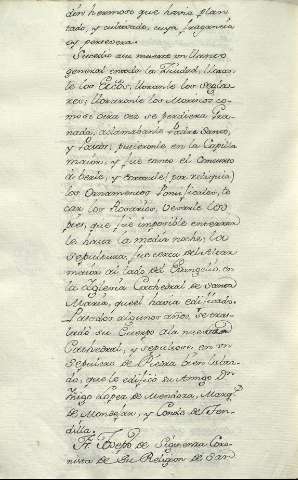 din hermoso que havia plan
tado, y cultivado, cuya fragancia
oy persevera.
Siguio a su muerte un llanto
general en toda la Ciudad, lloran
le los Ecos, lloranle los Segla
res, lloraronle los Moriscos co
mo si otra vez se perdiera Gra
nada, aclamabanle Padre Santo,
y Pastor, pusieronle en la Capilla
maior, y fue tanto el concurso
à verle, y tocarle por reliquia,
los Ornamentos Pontificales, to
car los Rosarios, besarle los
pies, que fue imposible enterrar
le hasta la media noche; la
sepultura, fue cerca del Altar
maior al lado del Evangelio, en
la Yglesia Cathedral de Santa
Maria, que el havia edificado.
Pasados algunos años, se tras
ladó su Cuerpo a la nueva
Cathedral, y sepultose en un
Sepulcro de Piedra bien labra
do, que le edifico su Amigo Dn
Yñigo Lopez de Mendoza, Marqs
de Mondejar, y Conde de Ten
dilla.
Fr. Joseph de Siguenza Coro
nista de su Religion de San